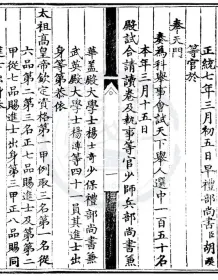 正統七年三月初五日早禮部尚書臣胡濙
等官於
奉天門
奏為科舉事會試天下舉人選中一百五十名
本年三月十五日
殿試合請讀卷及執事等官少師兵部尚書兼
華蓋殿大學士楊士奇少保禮部尚書兼
武英殿大學士楊溥等四十一員其進士出
身等第恭依
太祖高皇帝欽定資格第一甲例取三名第一名從
六品第二第三名正七品賜進士及第第二
甲從七品賜進士出身第三甲正八品賜同